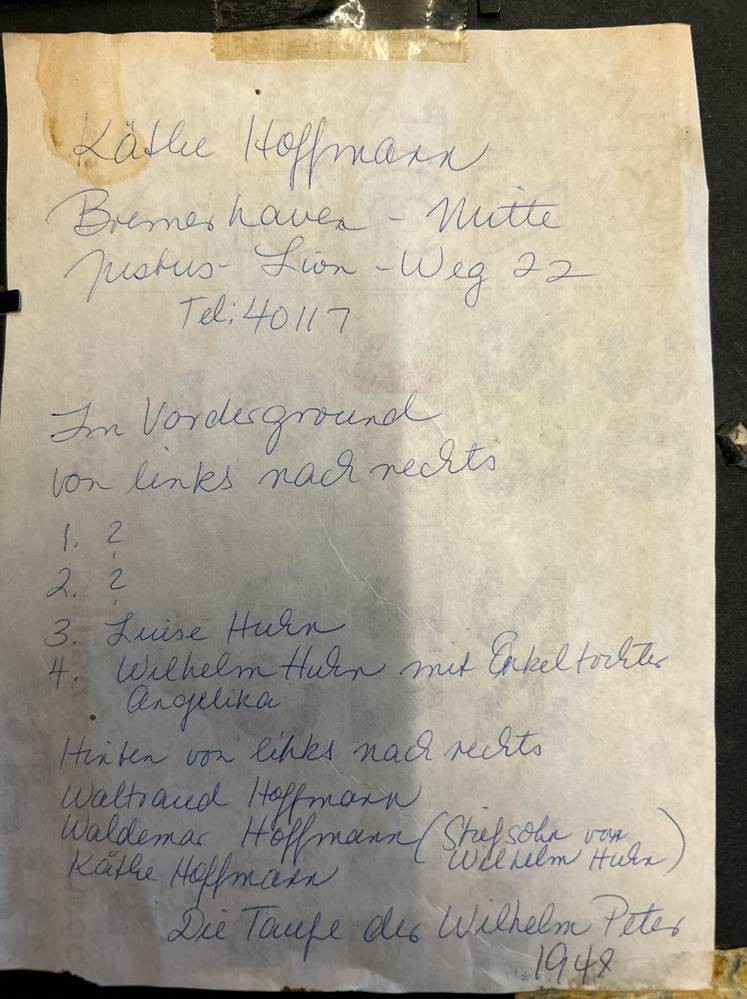 Käthe Hoffmann
Bremerhaven - Mitte
Justus- Lion - Weg 22
Tel: 40117
Im Vorderground
von links nach rechts
1. ?
2. ?
3. Luise Huhn
4. Wilhelm Huhn mit Enkeltochter
Angelika
Hinten von links nach rechts
Waltraud Hoffmann
Waldemar Hoffmann (Stiefsohn von
Wilhelm Huhn)
Käthe Hoffmann
Die Taufe des Wilhelm Peter
1948